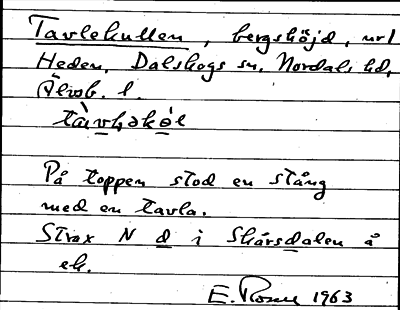 Tavlekullen, bergshöjd, url
Heden, Dalskogs sn, Nordals hd,
Älvsb. l.
På toppen stod en stång
med en tavla.
Strax N d i Skårsdalen å
ek.
E. Rosen 1963